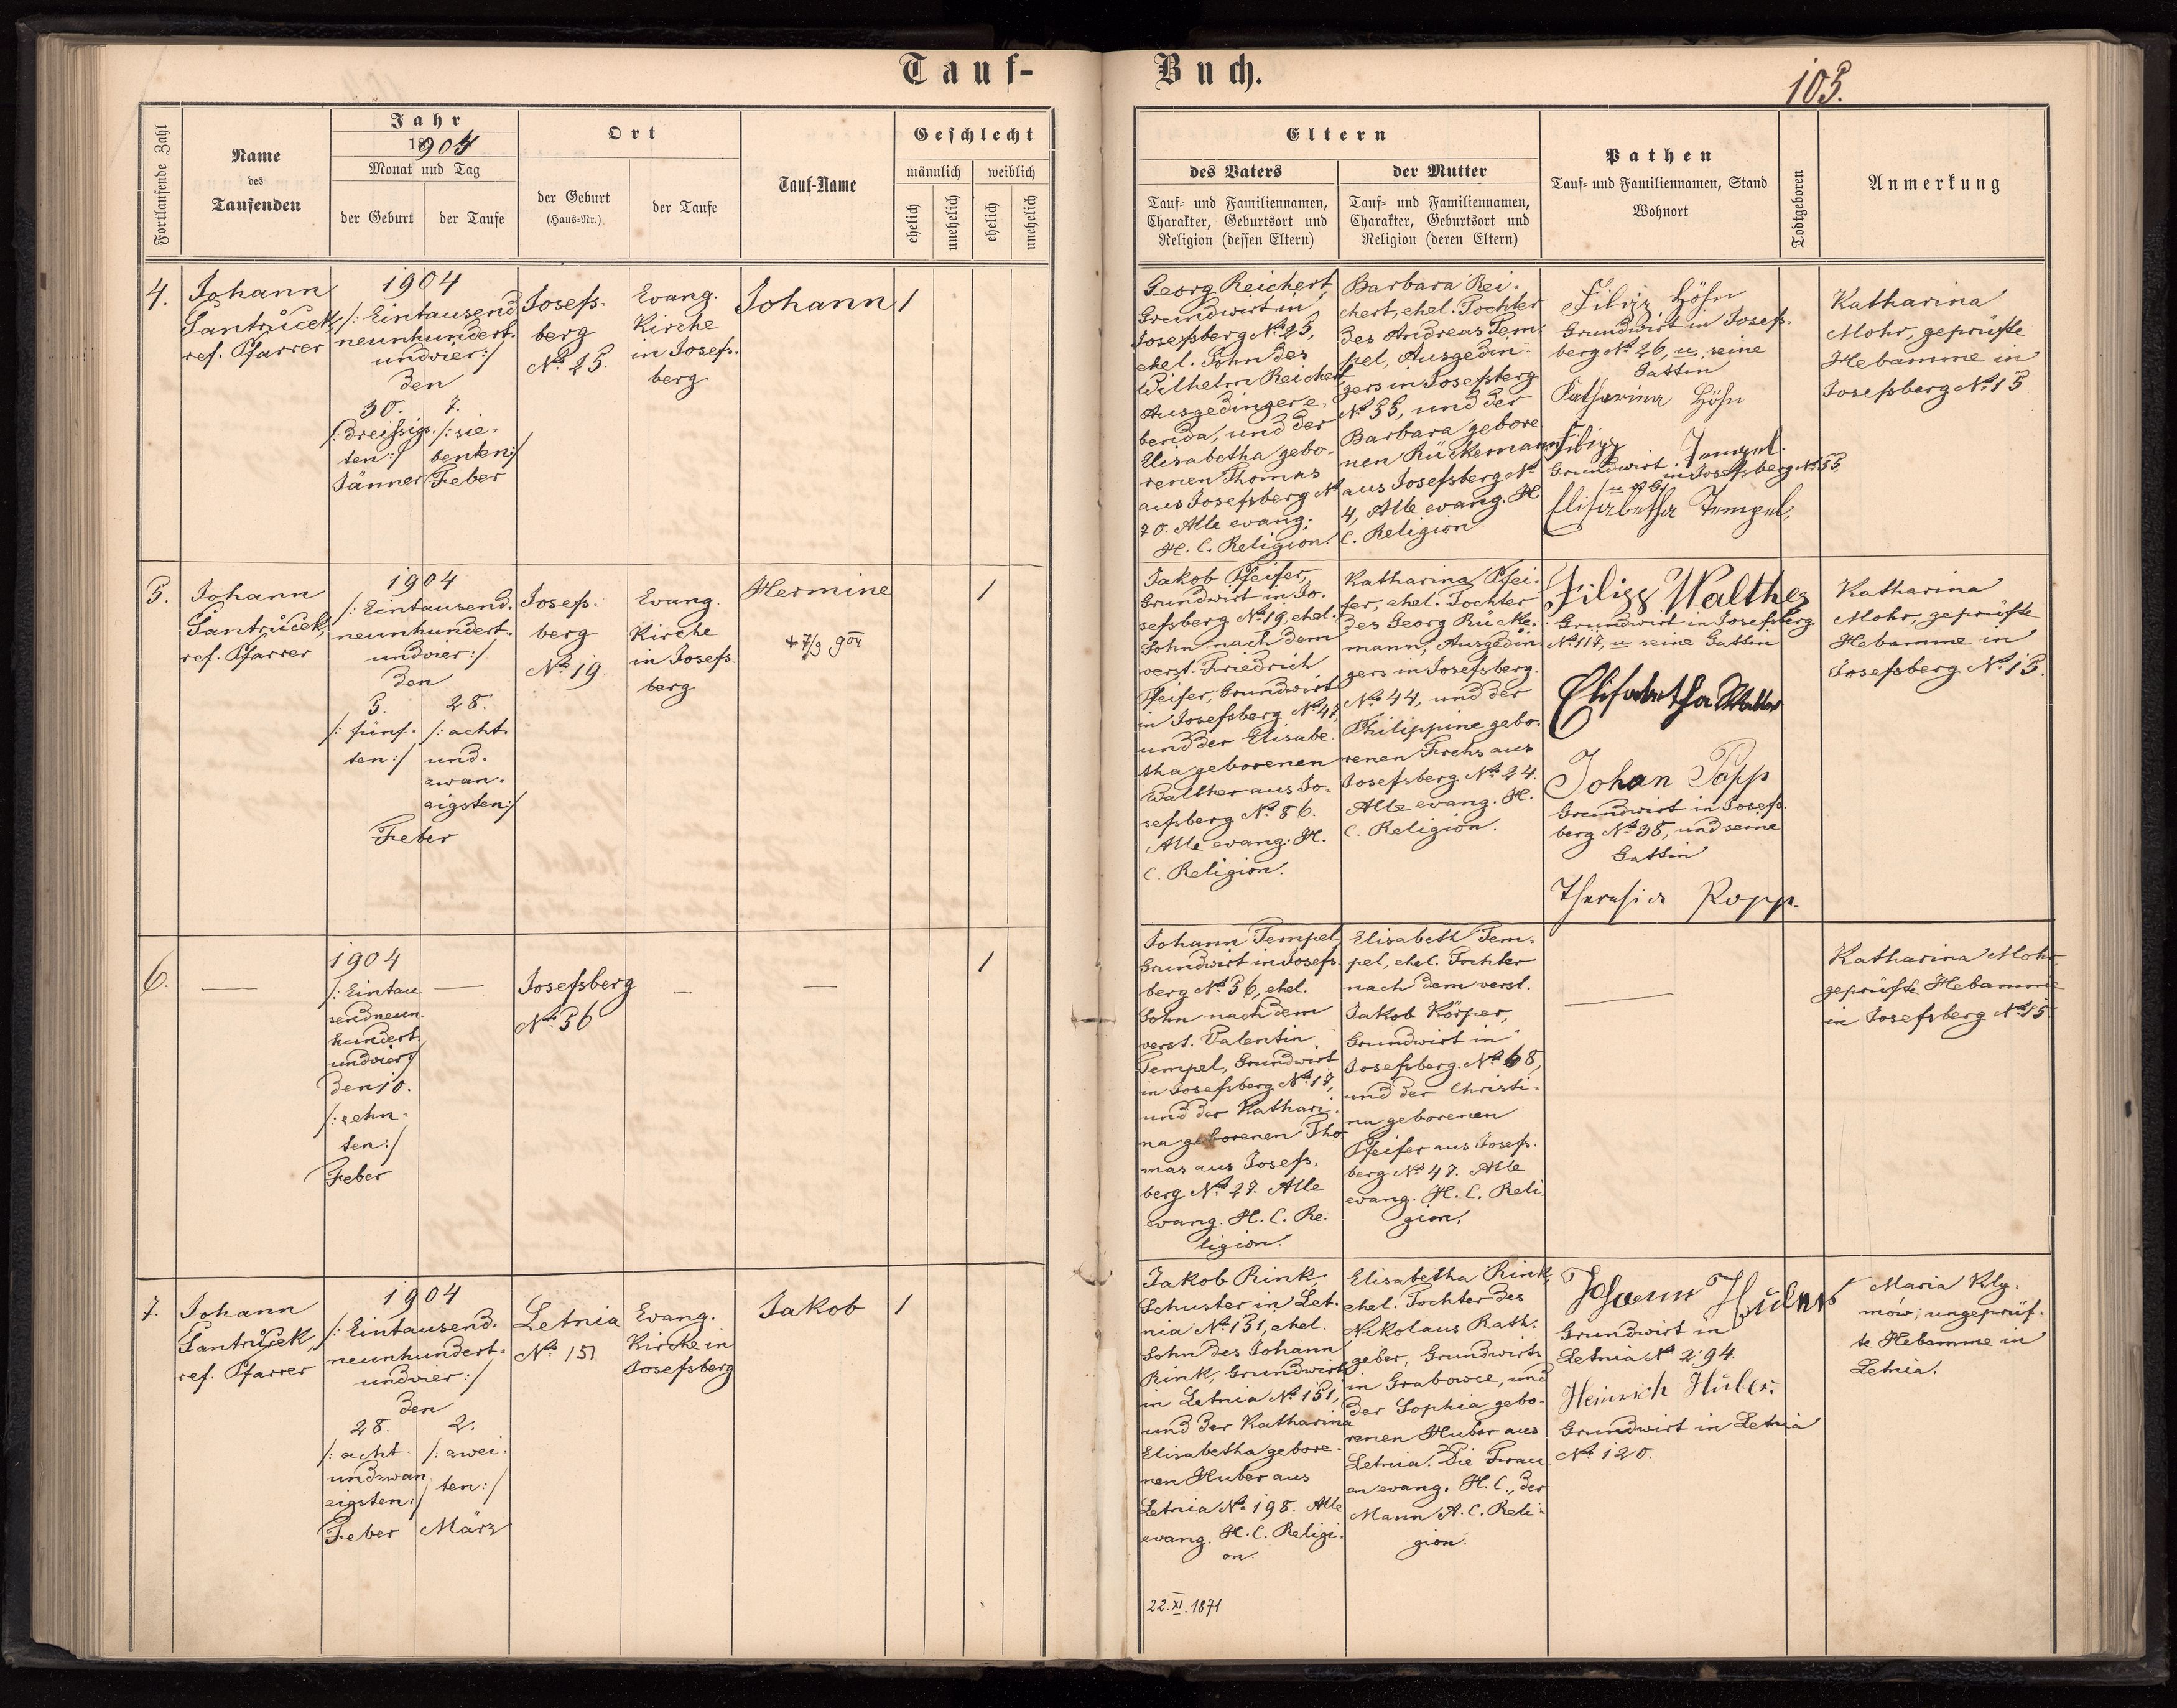 Tauf-
Buch.
105.
Fortlaufende Zahl
Name
des
Taufenden
Jahr
1904
Monat und Tag
der Geburt
der Taufe
Ort
der Geburt
(Haus-Nr.)
der Taufe
Tauf-Name
Geschlecht
männlich
weiblich
ehelich
unehelich
ehelich
unehelich
Eltern
des Vaters
Tauf- und Familiennamen,
Charakter, Geburtsort und
Religion (dessen Eltern)
der Mutter
Tauf- und Familiennamen,
Charakter, Geburtsort und
Religion (deren Eltern)
Pathen
Tauf- und Familiennamen, Stand
Wohnort
Todtgeboren
Anmerkung
4.
Johann
Santrůček,
ref. Pfarrer
1904
/: Eintausend
neunhundert-
undvier :/
den
30.
/: dreißigs-
ten :/
Jänner
7.
/: sie-
benten :/
Feber
Josefs-
berg
No 25.
Evang.
Kirche
in Josefs-
berg
Johann
1
Georg Reichert,
Grundwirt in
Josefsberg No 25,
ehel. Sohn des
Wilhelm Reichert
Ausgedinger e-
benda, und der
Elisabetha gebo-
renen Thomas
aus Josefsberg No
70. Alle evang.
H. C. Religion.
Barbara Rei-
chert, ehel. Tochter
des Andreas Tem-
pel, Ausgedin-
gers in Josefsberg
No 55, und der
Barbara gebore
nen Rückemann
aus Josefsberg No
4, Alle evang. H.
C. Religion
Filipp Höhn
Grundwirt in Josefs-
berg No 26, u. seine
Gattin
Katharina Höhn
Filipp Tempel.
Grundwirt in Josefsberg No 55
Elisabetha Tempel.
Katharina
Mohr, geprüfte
Hebamme in
Josefsberg No 15
5.
Johann
Santrůček,
ref. Pfarrer
1904
/: Eintausend-
neunhundert-
undvier :/
den
5.
/: fünf-
ten :/
28.
/: acht-
und-
zwan-
zigsten :/
Feber
Josefs-
berg
No 19
Evang.
Kirche
in Josefs-
berg
Hermine
+ 7/9 904
1
Jakob Pfeifer,
Grundwirt in Jo-
sefsberg No 19, ehel.
Sohn nach dem
verst. Friedrich
Pfeifer, Grundwirt
in Josefsberg No 47,
und der Elisabe-
tha geborenen
Walther aus Jo-
sefsberg No 86.
Alle evang. H.
C. Religion.
Katharina Pfei-
fer, ehel. Tochter
des Georg Rücke-
mann, Ausgedin
gers in Josefsberg
No 44, und der
Philippine gebo-
renen Frehs aus
Josefsberg No 24.
Alle evang. H.
C. Religion.
Filipp Walther
Grundwirt in Josefsberg
No 117, u seine Gattin
Elisabetha Walter
Johan Popp
Grundwirt in Josefs-
berg No 38, und seine
Gattin
Theresia Popp.
Katharina
Mohr, geprüfte
Hebamme in
Josefsberg No 15.
6.
—
1904
/: Eintau
sendneun-
hundert
undvier :/
den 10.
/: zehn-
ten :/
Feber
—
Josefsberg
No 56
—
—
1
Johann Tempel,
Grundwirt in Josefs-
berg No 56, ehel.
Sohn nach dem
verst. Valentin
Tempel, Grundwirt
in Josefsberg No 17,
und der Kathari-
na geborenen Tho
mas aus Josefs-
berg No 27. Alle
evang. H. C. Re-
ligion.
Elisabeth Tem-
pel, ehel. Tochter
nach dem verst.
Jakob Körper,
Grundwirt in
Josefsberg No 68,
und der Christi-
na geborenen
Pfeifer aus Josefs-
berg No 47. Alle
evang. H. C. Reli-
gion.
—
Katharina Mohr
geprüfte Hebamme
in Josefsberg No 15
7.
Johann
Santrůček,
ref. Pfarrer
1904
/: Eintausend-
neunhundert-
undvier :/
den
28.
/: acht-
undzwan
zigsten :/
Feber
2.
/: zwei-
ten :/
März
Letnia
No 151
Evang.
Kirche in
Josefsberg
Jakob
1
Jakob Rink
Schuster in Let-
nia No 151, ehel.
Sohn des Johann
Rink, Grundwirts
in Letnia No 151,
und der Katharina
Elisabetha gebore-
nen Huber aus
Letnia No 198. Alle
evang. H. C. Religi-
on.
22. XI. 1871
Elisabetha Rink,
ehel. Tochter des
Nikolaus Rath-
geber, Grundwirts
in Grabowce, und
der Sophia gebo-
renen Huber aus
Letnia. Die Frau
en evang. H. C., der
Mann A. C. Reli-
gion.
Johann Huber
Grundwirt in
Letnia No 294.
Heinrich Huber.
Grundwirt in Letnia
No 120.
Maria Kly-
mow, ungeprüf-
te Hebamme in
Letnia.